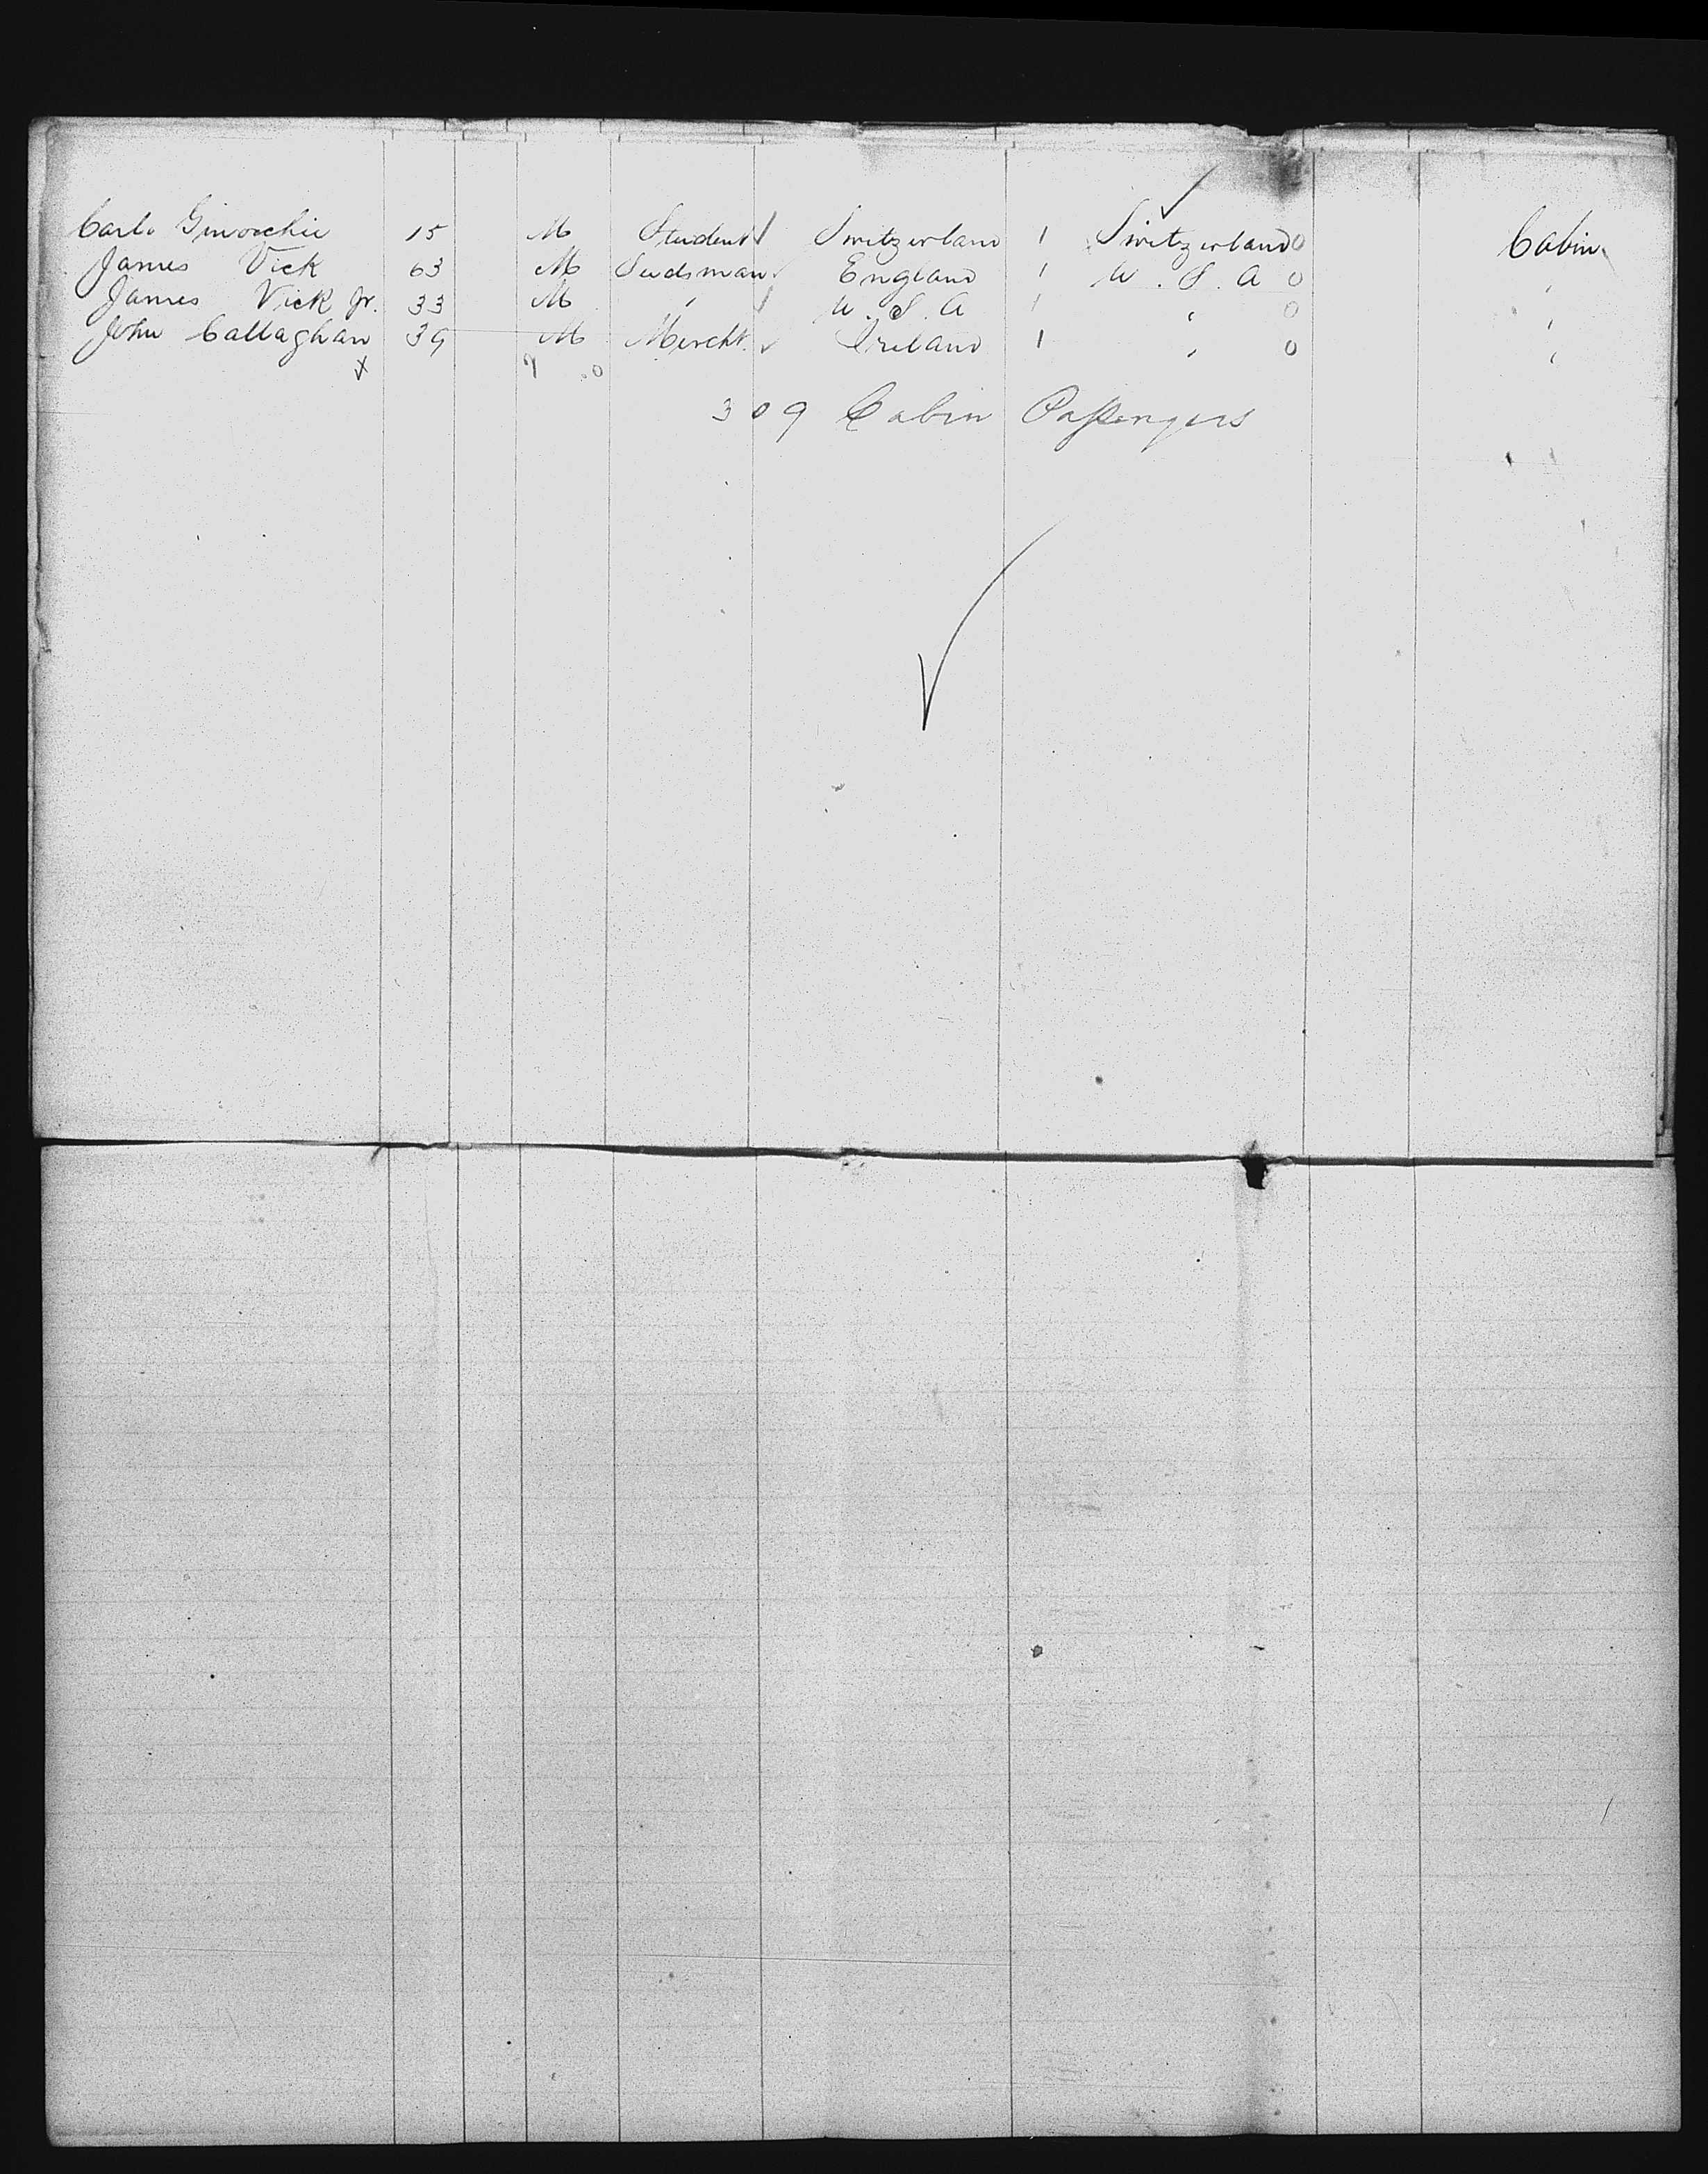 Carlo Ginocchie 15 M Student Switzerland 1 Switzerland 0 Cabin
James Vick 63 M Seedsman England 1 U. S. A 0 "
James Vick Jr. 33 M " U. S. A 1 " 0 "
John Callaghan 39 M Mercht. Ireland 1 " 0 "
309 Cabin Passengers